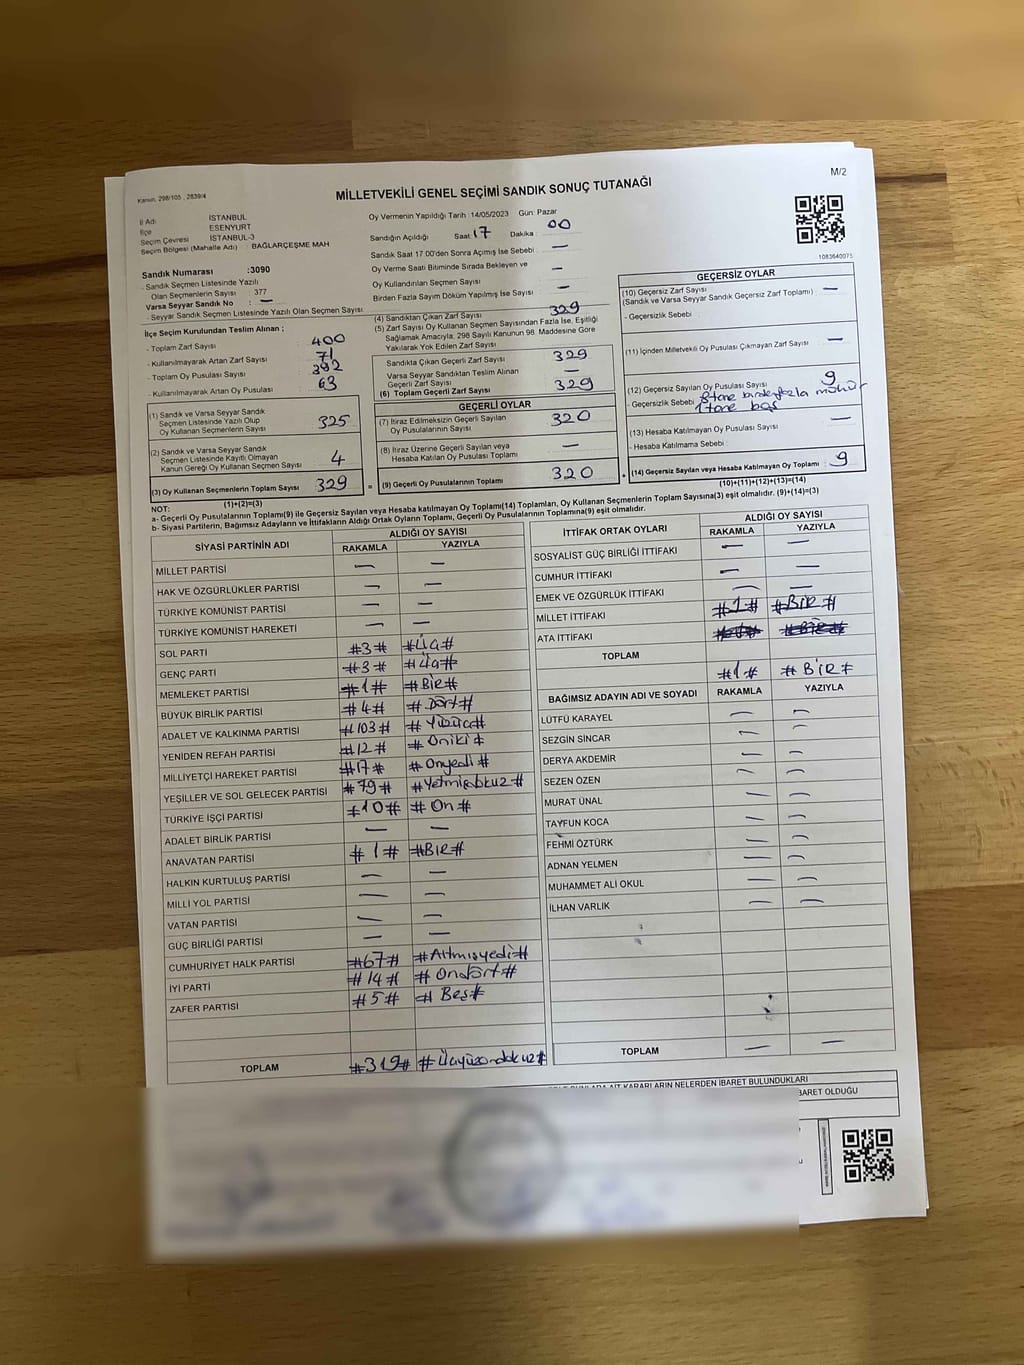 M/2
Kanun, 298/105 , 2839/4
MİLLETVEKİLİ GENEL SEÇİMİ SANDIK SONUÇ TUTANAĞI
İl Adı İSTANBUL
İlçe ESENYURT
Seçim Çevresi İSTANBUL-3
Seçim Bölgesi (Mahalle Adı) : BAĞLARÇEŞME MAH
Sandık Numarası :3090
- Sandık Seçmen Listesinde Yazılı
Olan Seçmenlerin Sayısı : 377
Varsa Seyyar Sandık No : —
- Seyyar Sandık Listesinde Yazılı Olan Seçmen Sayısı
İlçe Seçim Kurulundan Teslim Alınan ;
- Toplam Zarf Sayısı : 400
- Kullanılmayarak Artan Zarf Sayısı : 71
- Toplam Oy Pusulası Sayısı : 392
- Kullanılmayarak Artan Oy Pusulası : 63
(1) Sandık ve Varsa Seyyar Sandık
Seçmen Listesinde Yazılı Olup
Oy Kullanan Seçmenlerin Sayısı 325
(2) Sandık ve Varsa Seyyar Sandık
Seçmen Listesinde Kayıtlı Olmayan
Kanun Gereği Oy Kullanan Seçmen Sayısı 4
(3) Oy Kullanan Seçmenlerin Toplam Sayısı 329
(1)+(2)=(3)
Oy Vermenin Yapıldığı Tarih :14/05/2023 Gün: Pazar
Sandığın Açıldığı Saat: 17 Dakika : 00
Sandık Saat 17.00'den Sonra Açılmış İse Sebebi : —
Oy Verme Saati Bitiminde Sırada Bekleyen ve
Oy Kullandırılan Seçmen Sayısı : —
Birden Fazla Sayım Döküm Yapılmış İse Sayısı : —
(4) Sandıktan Çıkan Zarf Sayısı : 329
(5) Zarf Sayısı Oy Kullanan Seçmen Sayısından Fazla İse, Eşitliği
Sağlamak Amacıyla, 298 Sayılı Kanunun 98. Maddesine Göre
Yakılarak Yok Edilen Zarf Sayısı :
Sandıkta Çıkan Geçerli Zarf Sayısı 329
Varsa Seyyar Sandıktan Teslim Alınan
Geçerli Zarf Sayısı —
(6) Toplam Geçerli Zarf Sayısı 329
GEÇERLİ OYLAR
(7) İtiraz Edilmeksizin Geçerli Sayılan
Oy Pusulalarının Sayısı : 320
(8) İtiraz Üzerine Geçerli Sayılan veya
Hesaba Katılan Oy Pusulası Toplamı : —
(9) Geçerli Oy Pusulalarının Toplamı 320
1083640075
GEÇERSİZ OYLAR
(10) Geçersiz Zarf Sayısı : —
(Sandık ve Varsa Seyyar Sandık Geçersiz Zarf Toplamı)
- Geçersizlik Sebebi :
(11) İçinden Milletvekili Oy Pusulası Çıkmayan Zarf Sayısı : —
(12) Geçersiz Sayılan Oy Pusulası Sayısı : 9
- Geçersizlik Sebebi : 8 tane birden fazla mühür
1 tane boş
(13) Hesaba Katılmayan Oy Pusulası Sayısı : —
- Hesaba Katılmama Sebebi :
(14) Geçersiz Sayılan veya Hesaba Katılmayan Oy Toplamı : 9
(10)+(11)+(12)+(13)=(14)
NOT:
a- Geçerli Oy Pusulaları Toplamı(9) ile Geçersiz Sayılan veya Hesaba katılmayan Oy Toplamı(14) Toplamları, Oy Kullanan Seçmenlerin Toplam Sayısına(3) eşit olmalıdır. (9)+(14)=(3)
b- Siyasi Partilerin, Bağımsız Adayların ve İttifakların Aldığı Ortak Oyların Toplamı, Geçerli Oy Pusulalarının Toplamına(9) eşit olmalıdır.
SİYASİ PARTİNİN ADI ALDIĞI OY SAYISI
RAKAMLA YAZIYLA
MİLLET PARTİSİ — —
HAK VE ÖZGÜRLÜKLER PARTİSİ — —
TÜRKİYE KOMÜNİST PARTİSİ — —
TÜRKİYE KOMÜNİST HAREKETİ — —
SOL PARTİ #3# #Üç#
GENÇ PARTİ #3# #Üç#
MEMLEKET PARTİSİ #1# #Bir#
BÜYÜK BİRLİK PARTİSİ #4# #Dört#
ADALET VE KALKINMA PARTİSİ #103# #Yüzüç#
YENİDEN REFAH PARTİSİ #12# #Oniki#
MİLLİYETÇİ HAREKET PARTİSİ #17# #Onyedi#
YEŞİLLER VE SOL GELECEK PARTİSİ #79# #Yetmişdokuz#
TÜRKİYE İŞÇİ PARTİSİ #10# #On#
ADALET BİRLİK PARTİSİ — —
ANAVATAN PARTİSİ #1# #BİR#
HALKIN KURTULUŞ PARTİSİ — —
MİLLİ YOL PARTİSİ — —
VATAN PARTİSİ — —
GÜÇ BİRLİĞİ PARTİSİ — —
CUMHURİYET HALK PARTİSİ #67# #Altmışyedi#
İYİ PARTİ #14# #Ondört#
ZAFER PARTİSİ #5# #Beş#
TOPLAM #319# #Üçyüzondokuz#
İTTİFAK ORTAK OYLARI ALDIĞI OY SAYISI
RAKAMLA YAZIYLA
SOSYALİST GÜÇ BİRLİĞİ İTTİFAKI — —
CUMHUR İTTİFAKI — —
EMEK VE ÖZGÜRLÜK İTTİFAKI — —
MİLLET İTTİFAKI #1# #BİR#
ATA İTTİFAKI
TOPLAM #1# #BİR#
BAĞIMSIZ ADAYIN ADI VE SOYADI RAKAMLA YAZIYLA
LÜTFÜ KARAYEL — —
SEZGİN SİNCAR — —
DERYA AKDEMİR — —
SEZEN ÖZEN — —
MURAT ÜNAL — —
TAYFUN KOCA — —
FEHMİ ÖZTÜRK — —
ADNAN YELMEN — —
MUHAMMET ALİ OKUL — —
İLHAN VARLIK — —
TOPLAM — —
KARARLARIN NELERDEN İBARET BULUNDUKLARI
İBARET OLDUĞU